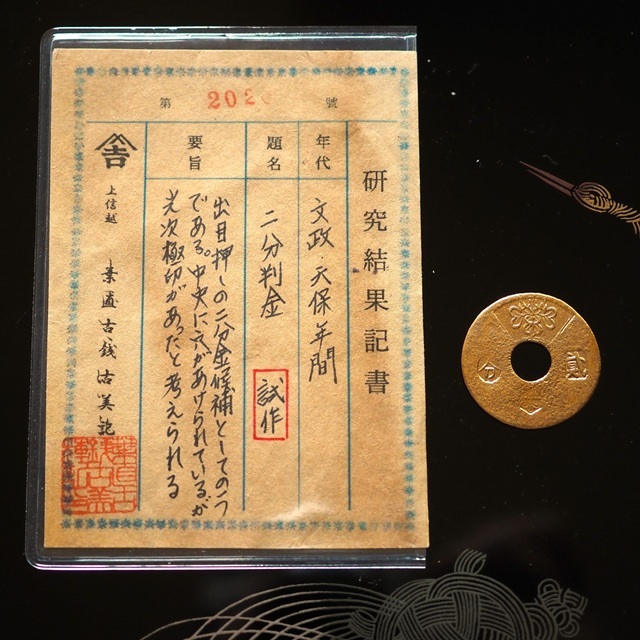 第 202 號
研究結果記書
年代 文政・天保年間
題名 二分判金 試作
要旨 出目押しの二分金候補としての一つ
である。中央に穴があけられているが
光次極印があったと考えられる
吉
上信越
直古銭
分